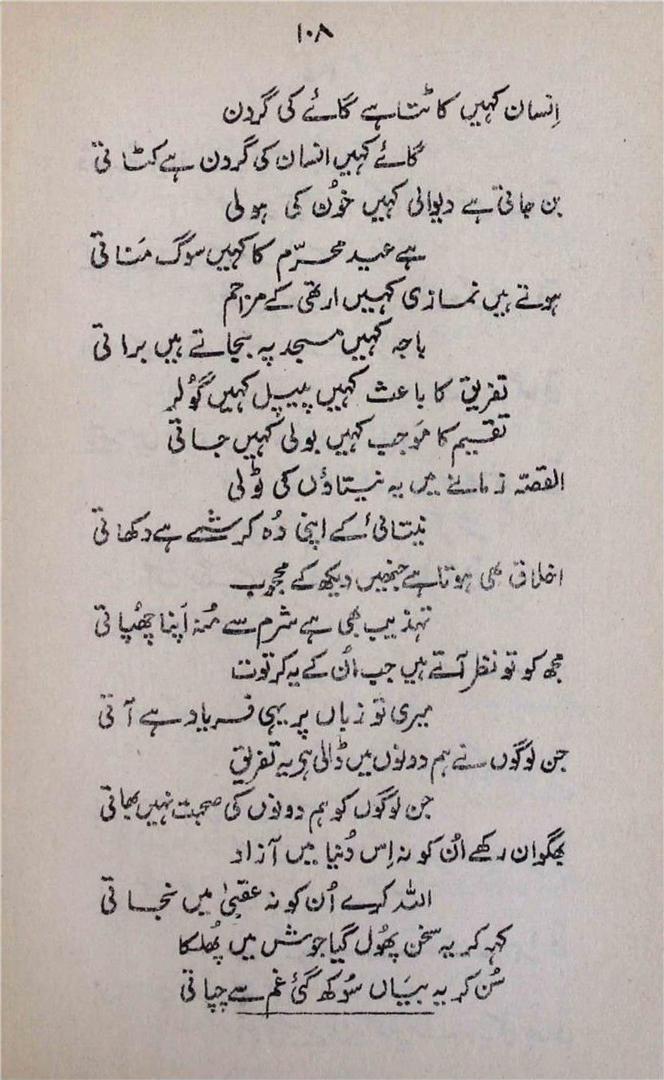 ۱۰۸
اِنسان کہیں کاٹتا ہے گائے کی گردن
گائے کہیں انسان کی گردن ہے کٹاتی
بن جاتی ہے دیوالی کہیں خوُن کی ہولی
ہے عید محرّم کا کہیں سوگ مَناتی
ہوتے ہیں نمازی کہیں ارتھی کے مزاحم
باجہ کہیں مسجد پہ بجاتے ہیں براتی
تفریق کا باعث کہیں پیپل کہیں گوُلر
تقسیم کا مَوجب کہیں بولی کہیں جاتی
القصّہ زمانے میں یہ نیتاؤں کی ٹولی
نیتائی کے اپنی وُہ کرشمے ہے دکھاتی
اخلاق بھی ہوتا ہے جنھیں دیکھ کے محجوب
تہذیب بھی ہے شرم سے مُنہ اَپنا چھُپاتی
مجھ کو تو نظر آتے ہیں جب اُن کے یہ کرتوت
میری تو زباں پر یہی فریاد ہے آتی
جن لوگوں نے ہم دونوں میں ڈالی ہی یہ تفریق
جن لوگوں کو ہم دونوں کی صحبت نہیں بھاتی
بھگوان رکھے اُن کو نہ اِس دُنیا میں آزاد
اللہ کرے اُن کو نہ عقبیٰ میں نجاتی
کہہ کر یہ سخن پھُول گیا جوش میں پھُلکا
سُن کر یہ بیَاں سُوکھ گئی غم سے چپاتی